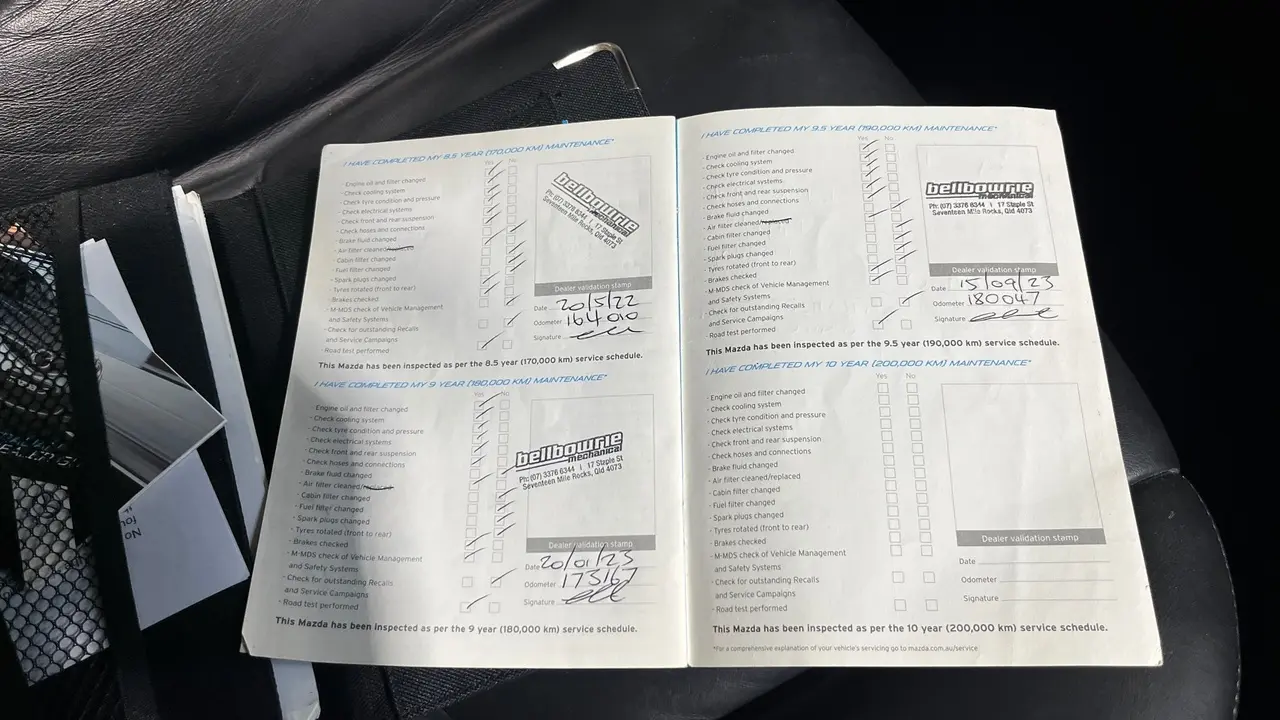 I HAVE COMPLETED MY 8.5 YEAR (170,000 KM) MAINTENANCE*
Yes No
· Engine oil and filter changed
· Check cooling system
· Check tyre condition and pressure
· Check electrical systems
· Check front and rear suspension
· Check hoses and connections
· Brake fluid changed
· Air filter cleaned/replaced
· Cabin filter changed
· Fuel filter changed
· Spark plugs changed
· Tyres rotated (front to rear)
· Brakes checked
· M-MDS check of Vehicle Management
and Safety Systems
· Check for outstanding Recalls
and Service Campaigns
· Road test performed
bellbowrie
Ph: (07) 3376 6344 | 17 Staple St
Seventeen Mile Rocks, Qld 4073
Dealer validation stamp
Date 20/5/22
Odometer 164010
Signature
This Mazda has been inspected as per the 8.5 year (170,000 km) service schedule.
I HAVE COMPLETED MY 9 YEAR (180,000 KM) MAINTENANCE*
Yes No
· Engine oil and filter changed
· Check cooling system
· Check tyre condition and pressure
· Check electrical systems
· Check front and rear suspension
· Check hoses and connections
· Brake fluid changed
· Air filter cleaned/replaced
· Cabin filter changed
· Fuel filter changed
· Spark plugs changed
· Tyres rotated (front to rear)
· Brakes checked
· M-MDS check of Vehicle Management
and Safety Systems
· Check for outstanding Recalls
and Service Campaigns
· Road test performed
bellbowrie
mechanical
Ph: (07) 3376 6344 | 17 Staple St
Seventeen Mile Rocks, Qld 4073
Dealer validation stamp
Date 20/01/23
Odometer 173167
Signature
This Mazda has been inspected as per the 9 year (180,000 km) service schedule.
I HAVE COMPLETED MY 9.5 YEAR (190,000 KM) MAINTENANCE*
Yes No
· Engine oil and filter changed
· Check cooling system
· Check tyre condition and pressure
· Check electrical systems
· Check front and rear suspension
· Check hoses and connections
· Brake fluid changed
· Air filter cleaned/replaced
· Cabin filter changed
· Fuel filter changed
· Spark plugs changed
· Tyres rotated (front to rear)
· Brakes checked
· M-MDS check of Vehicle Management
and Safety Systems
· Check for outstanding Recalls
and Service Campaigns
· Road test performed
bellbowrie
mechanical
Ph: (07) 3376 6344 | 17 Staple St
Seventeen Mile Rocks, Qld 4073
Dealer validation stamp
Date 15/09/23
Odometer 180047
Signature
This Mazda has been inspected as per the 9.5 year (190,000 km) service schedule.
I HAVE COMPLETED MY 10 YEAR (200,000 KM) MAINTENANCE*
Yes No
· Engine oil and filter changed
· Check cooling system
· Check tyre condition and pressure
· Check electrical systems
· Check front and rear suspension
· Check hoses and connections
· Brake fluid changed
· Air filter cleaned/replaced
· Cabin filter changed
· Fuel filter changed
· Spark plugs changed
· Tyres rotated (front to rear)
· Brakes checked
· M-MDS check of Vehicle Management
and Safety Systems
· Check for outstanding Recalls
and Service Campaigns
· Road test performed
Dealer validation stamp
Date
Odometer
Signature
This Mazda has been inspected as per the 10 year (200,000 km) service schedule.
*For a comprehensive explanation of your vehicle's servicing go to mazda.com.au/service